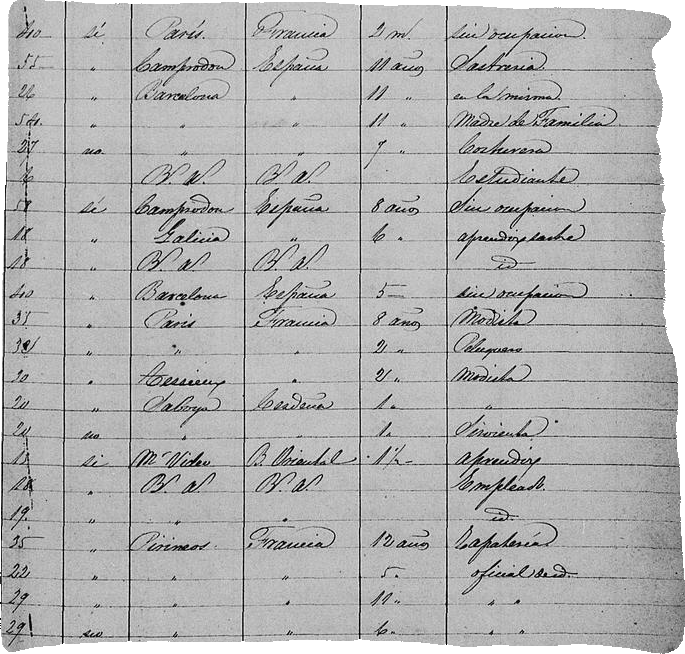 40 sí París. Francia 2 m. sin ocupacion
55 " Camprodon España 11 años Sastreria
22 " Barcelona " 11 " en la misma
54. " " " 11 " Madre de Familia
27 no " " 7 " Costurera
B. A. B. A. Estudiante
58 sí Camprodon España 8 años Sin ocupacion
18 " Galicia " 6 " aprendiz sastre
18 " B. A. B. A. id
40 " Barcelona España 5 — sin ocupacion
35 " Paris Francia 8 años Modista
" " " 2 " Peluquero
30 " " 2 " Modista
20 " Saboya Cerdeña 1 " "
20 no " " 1 " Sirvienta
15 si Mte Video B. Oriental 1½ — aprendiz
18 " B. A. B. A. Empleado.
19. " " " id.
35 " Pirineos. Francia 12 años Zapatería
22 " " " 5 " oficial de id.
29 " " " 11 " " "
29 no " " 6 " " "